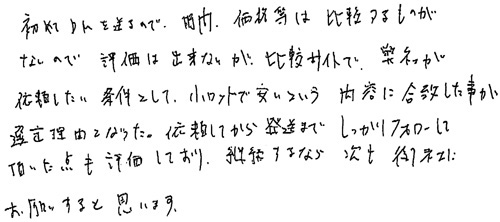 初めてDMを送るので、内、価格等は比較するものが
ないので評価は出来ないが、比較サイトで、弊社が
依頼したい条件として、小ロットで安いという内容に合致した事が
選定理由となった。依頼してから発送までしっかりフォローして
頂いた点も評価しており、継続するなら次も御社に
お願いすると思います。